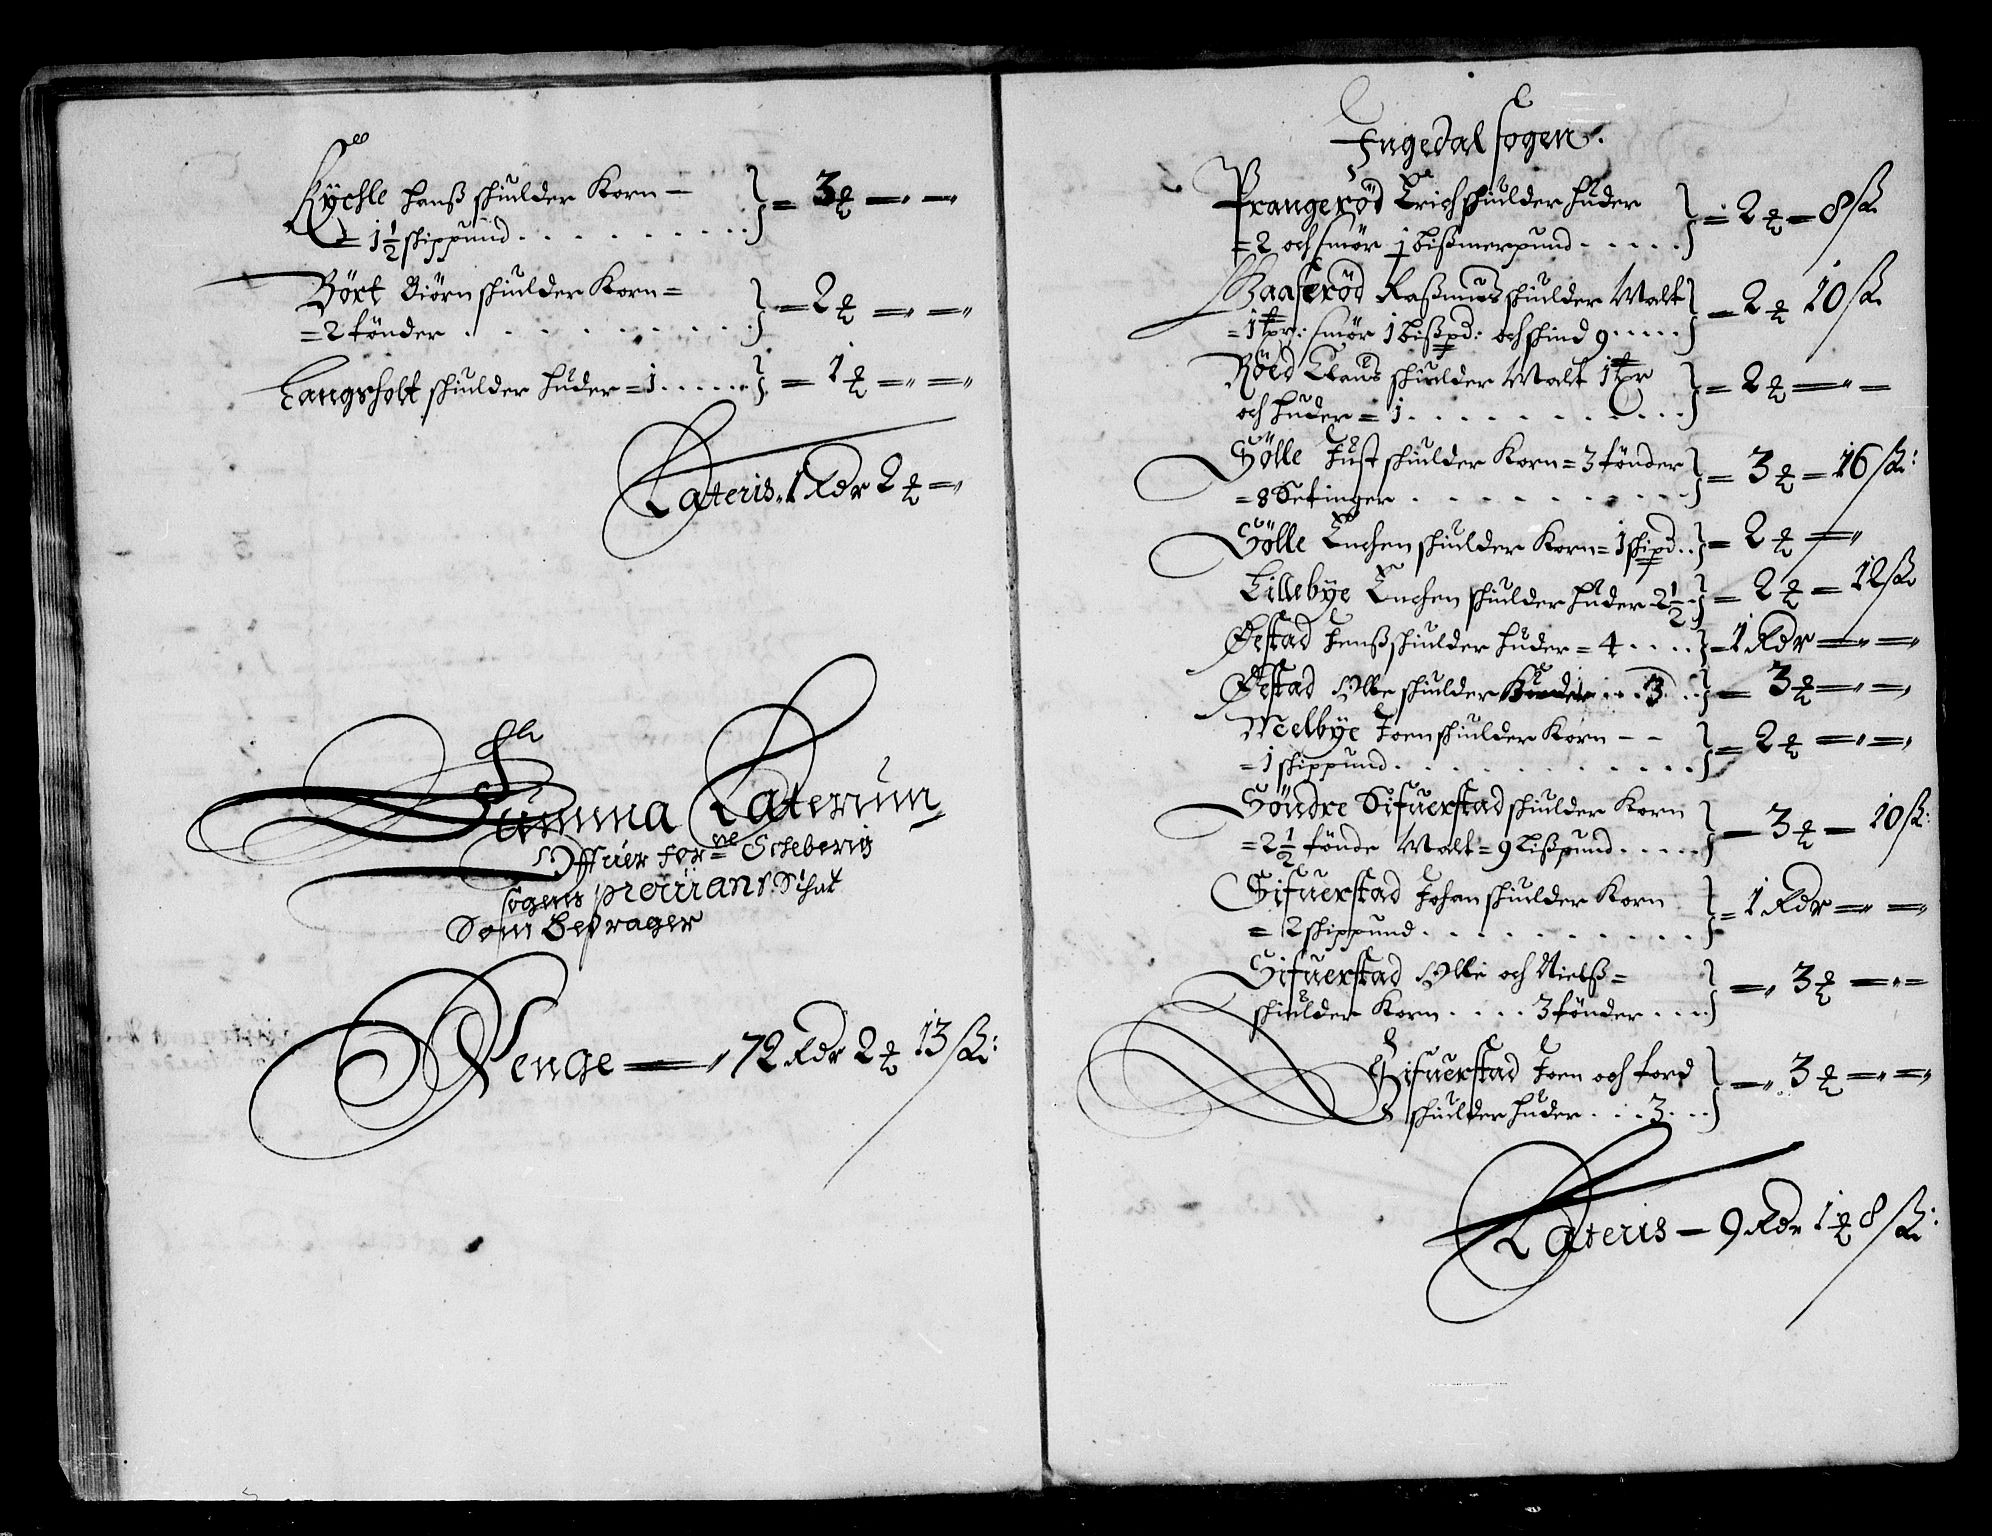 Kÿchle Hanß skiulder Korn –
= 1½ skippund . . . . . . . . . . } = 3 ₻ =" ="
Bört Biörn skiulder Korn =
= 2 tönder . . . . . . . . . . } = 2 ₻ =" ="
Langsholt skiulder Huder = 1 . . . . . } = 1 ₻ =" ="
Lateris. 1 Rdr 2 ₻ ="
Summa Laterum
Offuer for.ne Scheberig
sogens proviant Schat
Som Bedrager
Penge ═" 72 Rdr 2 ₻ 13 ß:
Ingedal sogen.
Prangeröd Erich skiulder Huder
= 2 och smör 1 bißmerpund . . . . . } = 2 ₻ = 8 ß
Baaseröd Raßmus skiulder Malt
= 1 tpr: smör 1 bißpd: och skind 9 . . . . . } = 2 ₻ 10 ß
Röed Claus skiulder Malt 1 tpr
och Huder = 1 . . . . . . . . . } = 2 ₻ =" =
Sölle Just skiulder Korn = 3 tönder
= 8 Setinger . . . . . . . . . } = 3 ₻ = 16 ß:
Sölle Enchen skiulder Korn = 1 skipd . . } = 2 ₻ ="
Lillebÿe Enchen skiulder Huder 2½ . } = 2 ₻ = 12 ß
Östad Jenß skiulder Huder = 4 . . . . } = 1 Rdr =" ="
Östad Olle skiulder Huder . . 3 . . } = 3 ₻ =" ="
Meelbÿe Joen skiulder Korn – –
= 1 skippund . . . . . . . . . . } = 2 ₻ =" ="
Söndre Sifuerstad skiulder Korn
= 2½ tönde Malt = 9 Lißpund . . . . . } = 3 ₻ = 10 ß:
Sifuerstad Johan skiulder Korn
= 2 skippund . . . . . . . . . } = 1 Rdr =" ="
Sifuerstad Olle och Nielß =
skiulder Korn . . . . 3 tönder . . . . } =" 3 ₻ =" =
Sifuerstad Joen och Tord
skiulder Huder . . . . 3 . . . } =" 3 ₻ =" ="
Lateris – 9 Rdr 1 ₻ 8 ß: